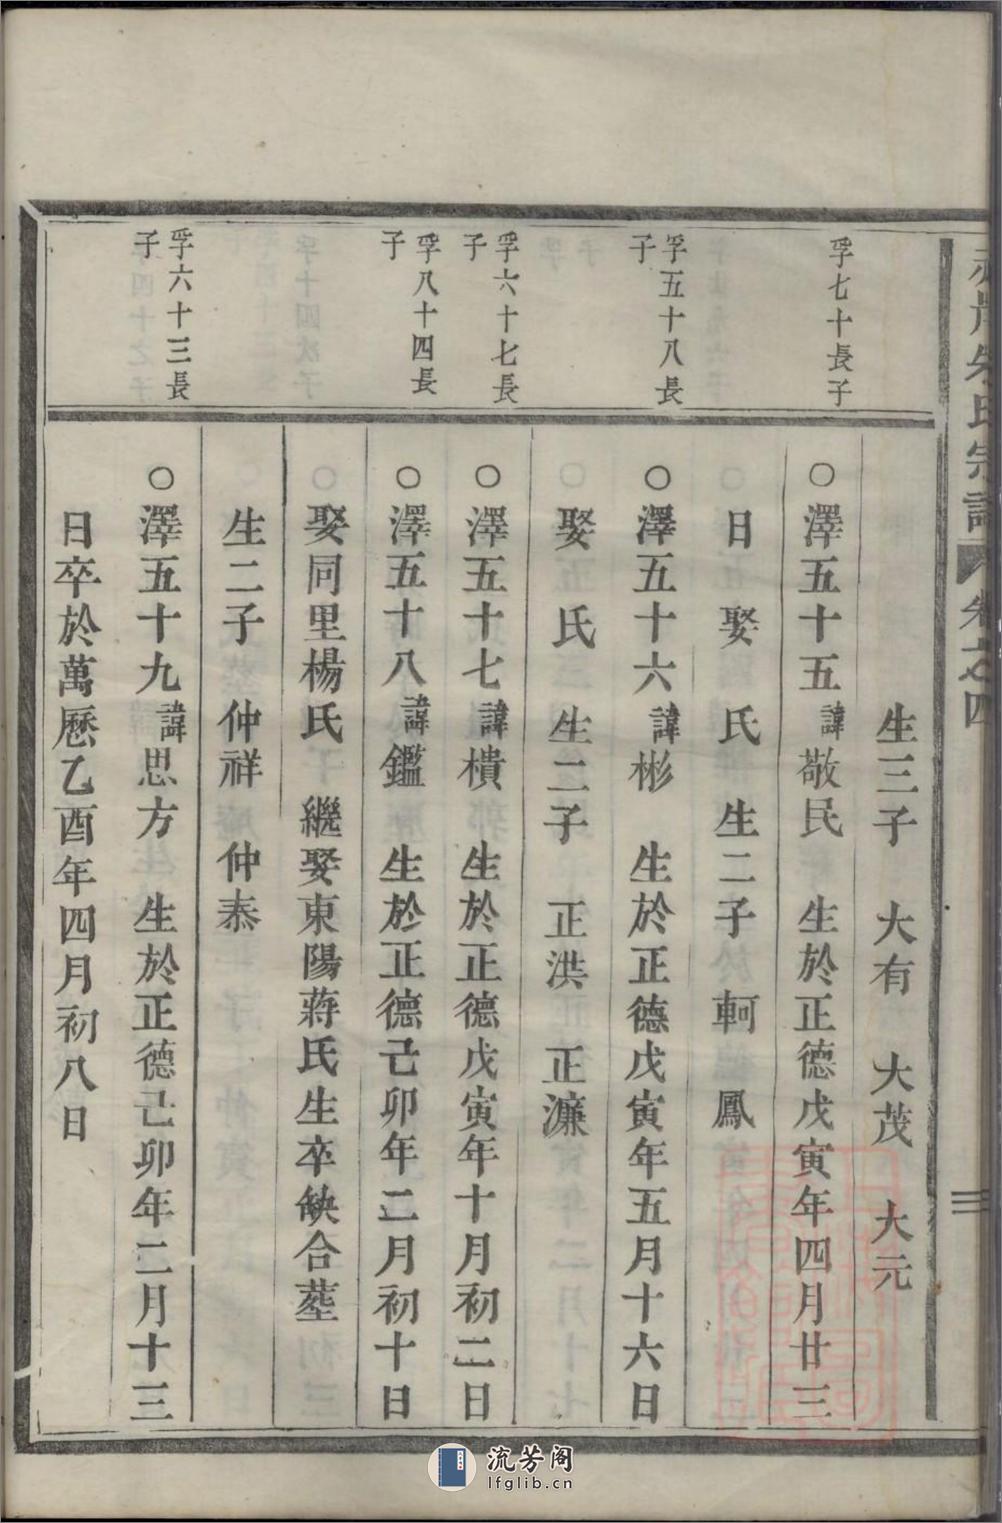 朱氏宗譜 卷之四 三
生三子 大有 大茂 大元
孚七十長子
○澤五十五諱敬民 生於正德戊寅年四月廿三
日娶 氏 生二子 軻 鳳
孚五十八長子
○澤五十六諱彬 生於正德戊寅年五月十六日
娶 氏 生二子 正洪 正濂
孚六十七長子
○澤五十七諱樻 生於正德戊寅年十月初二日
孚八十四長子
○澤五十八諱鑑 生於正德己卯年二月初十日
娶同里楊氏 繼娶東陽蔣氏生卒缺合塟
生二子 仲祥 仲泰
孚六十三長子
○澤五十九諱思方 生於正德己卯年二月十三
日卒於萬曆乙酉年四月初八日
流芳阁
lfglib.cn